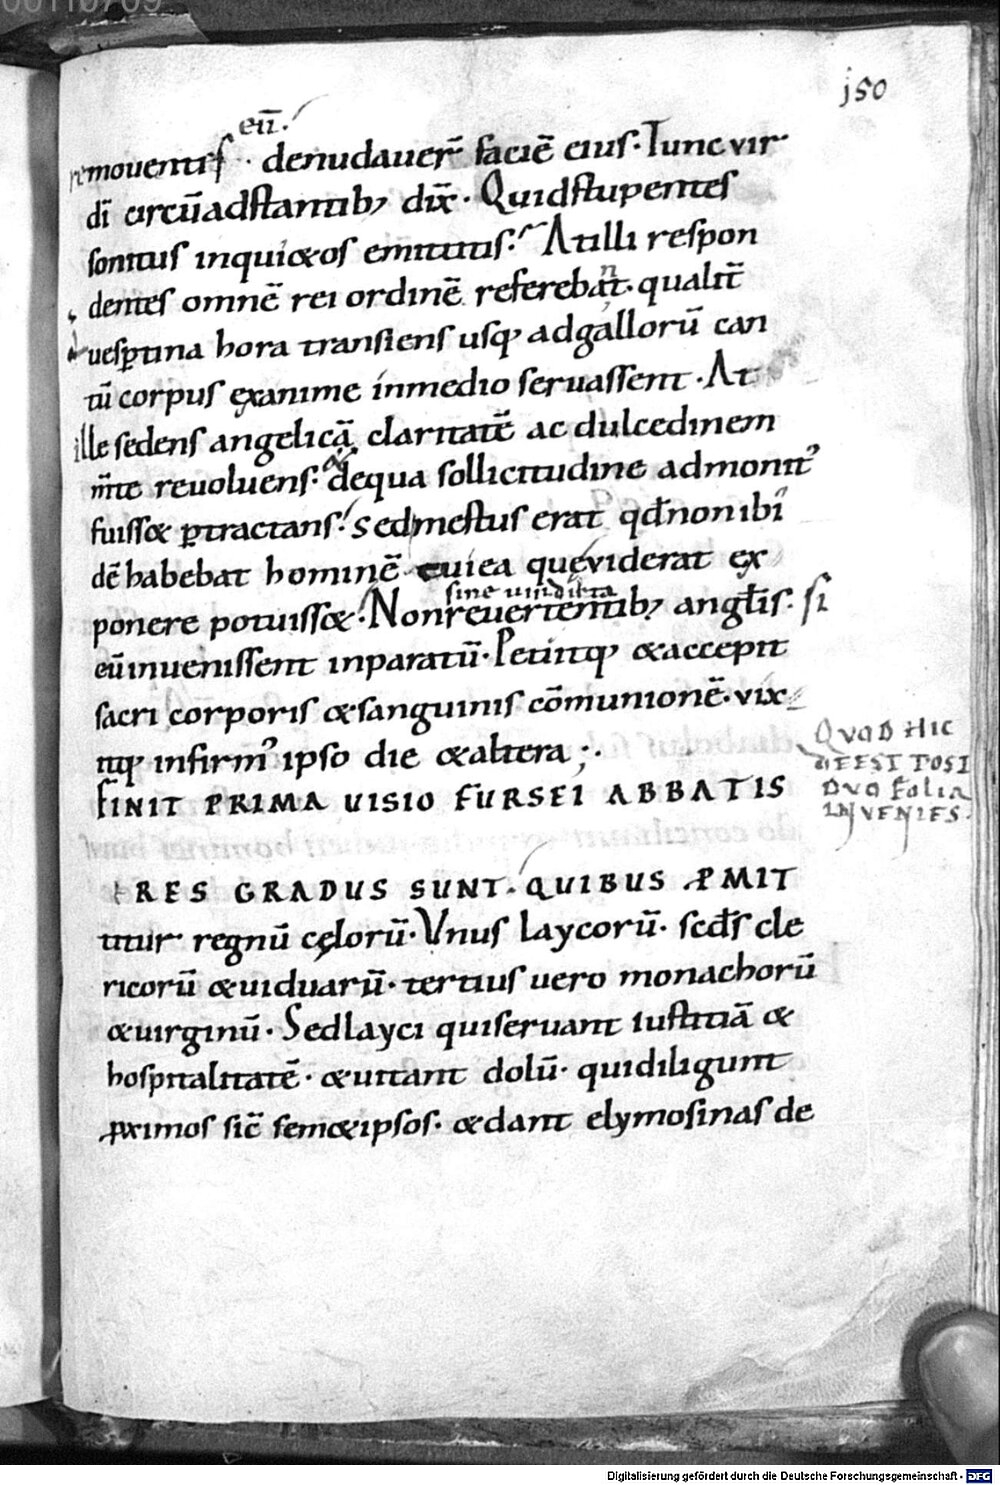 150
eū.
remouentes · denudauer̄ faciē eius · Tunc vir
dī circū adstantib; dix̄ · Quid stupentes
sonitus inqui&os emittitis. At illi respon
dentes omnē rei ordinē referebant · qualit̄
uesp̱tina hora transiens usq; ad gallorū can
tū corpus exanime in medio seruassent · At
ille sedens angelicā claritatē ac dulcedinem
m̄te reuoluens · & de qua sollicitudine admonit᾽
fuiss& p̱tractans · Sed mestus erat qđ non ibi
dē habebat hominē cui ea que viderat ex
ponere potuiss& · Non reuertentib; angl̄is · si
sine uindicta
eū inuenissent inparatū · Petiitq; & accepit
sacri corporis & sanguinis cōmunionē · vix
itq; infirm᾽ ipso die & altera ;·
FINIT PRIMA UISIO FURSEI ABBATIS
QVOD HIC
DEEST POST
DVO FOLIA
INVENIES ·
TRES GRADUS SUNT · QUIBUS ꝓMIT
titur regnū cęlorū · Vnus laycorū · scđs cle
ricorū & uiduarū · tertius uero monachorū
& uirginū · Sed layci qui seruant iustitiā &
hospitalitatē · & uitant dolū · qui diligunt
ꝓximos sic̄ sem&ipsos · & dant elymosinas de
Digitalisierung gefördert durch die Deutsche Forschungsgemeinschaft - DFG